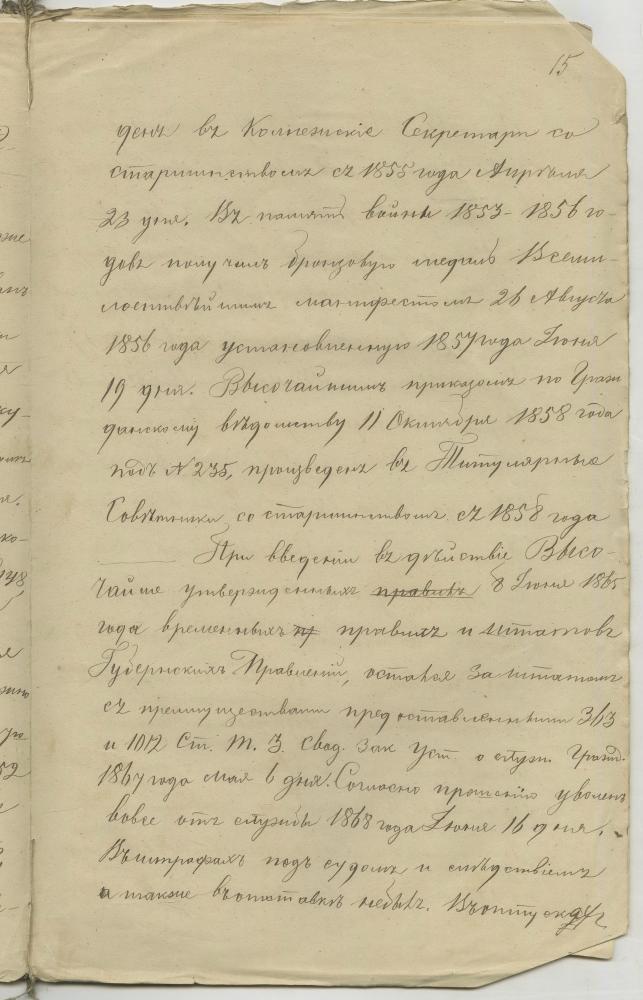 15
денъ въ Коллежскіе Секретари со
старшинствомъ съ 1855 года Апрѣля
23 дня. Въ память войны 1853-1856 го-
довъ получилъ бронзовую медаль Всеми-
лостивѣйшимъ манифестомъ 26 Августа
1856 года установленную 1857 года Іюня
19 дня. Высочайшимъ приказомъ по Граж
данскому вѣдомству 11 Октября 1858 года
подъ № 235, произведенъ въ Титулярные
Совѣтники со старшинствомъ съ 1858 года
При введеніи въ дѣйствіе Высо-
чайше утвержденныхъ правилъ 8 Іюня 1865
года временныхъ пр правилъ и штатовъ
Губернскихъ Правленій, остался за штатомъ
съ преимуществами предоставленными 363
и 1012 Ст. Т. 3. Свод. Зак Уст. о служ. Гражд.
1867 года мая 6 дня. Согласно прошенію уволенъ
вовсе отъ службы 1868 года Іюня 16 дня.
Въ штрафахъ подъ судомъ и слѣдствіемъ
а также въ отставкѣ небылъ. Въ отпуску